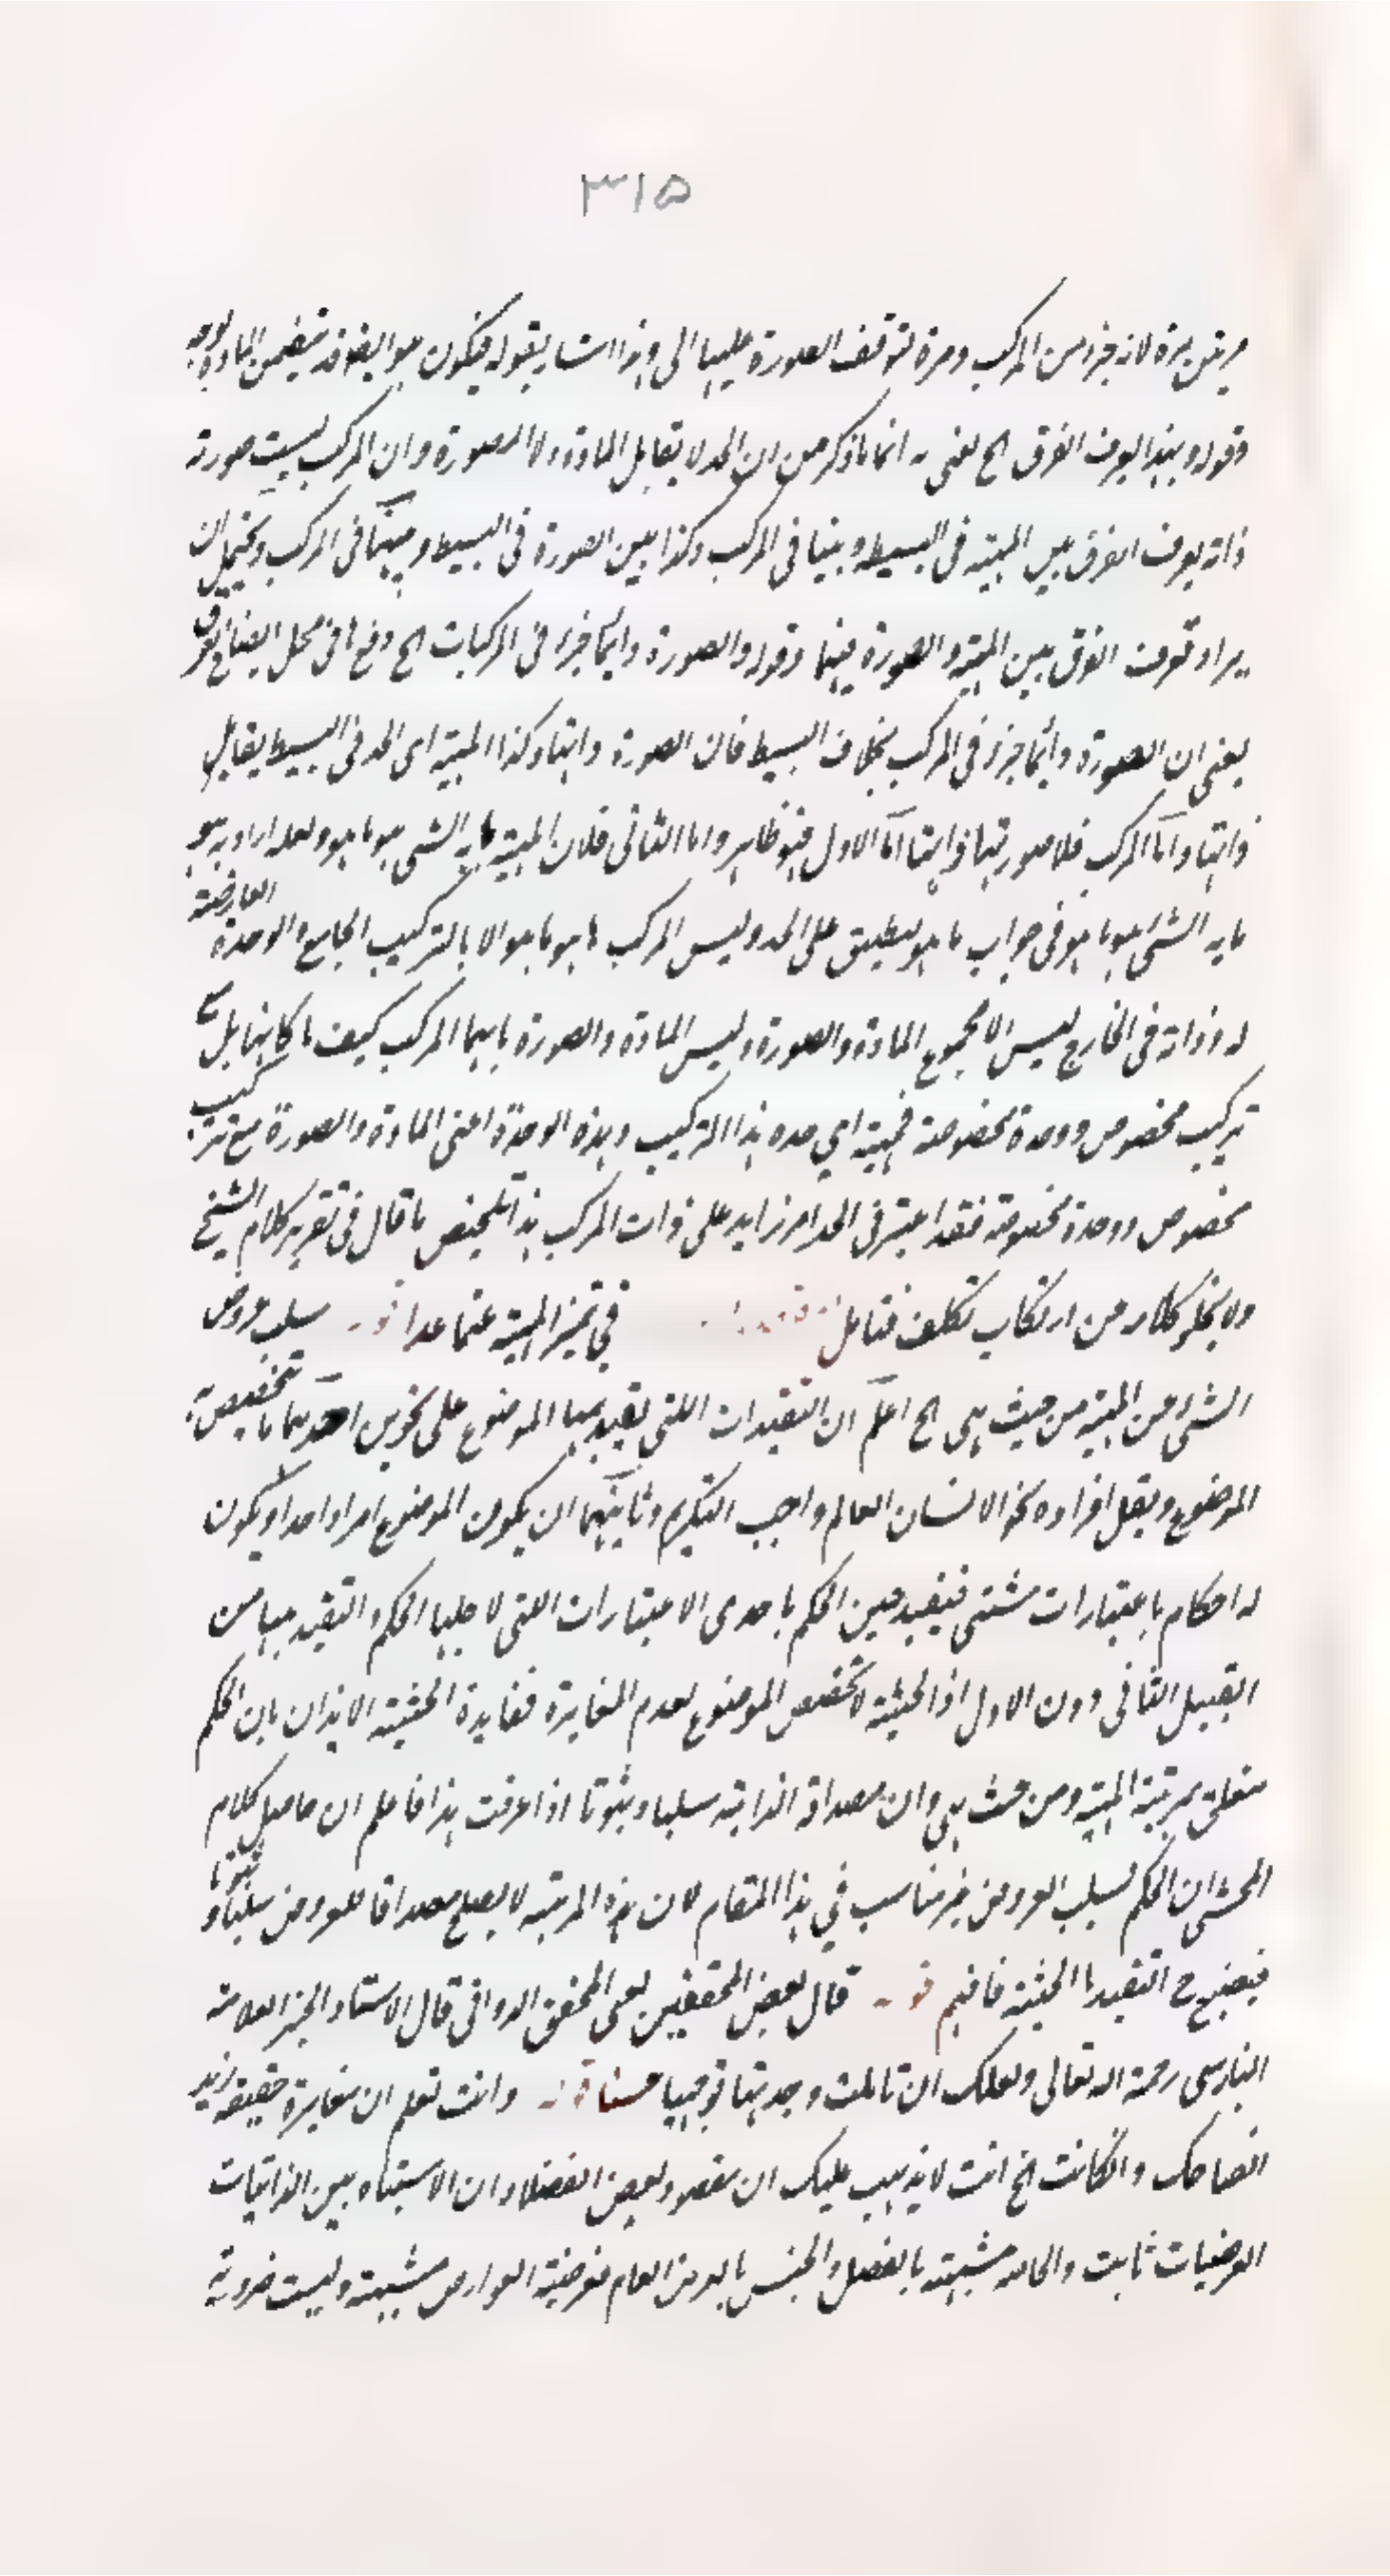 ٣١٥
مرتين مرة لانه جزء من المركب ومرة لتوقف الصورة عليها الى وهذا اشار بقوله فيكون هو ايضا قد يتضمن المادة
وقوله وبهذا يعرف الفرق الخ يعني به انما ذكر من ان الحد لا يقابل المادة ولا الصورة وان المركب ليست صورته
ذاته يعرف الفرق بين المهية في البسيط وبينها في المركب وكذا بين الصورة في البسيط وبينها في المركب ويحتمل ان
يراد تعرف الفرق بين المهية والصورة فيهما وقوله والصورة دايما جزء في المركبات الخ وقع في محل ايضاح الفرق
يعني ان الصورة دايما جزء في المركب بخلاف البسيط فان الصورة ذاتها وكذا المهية اى الحد في البسيط يقابل
ذاتها واما المركب فلا صورتها ذاتها اما الاول فهو ظاهر واما الثاني فلان المهية ما به الشي هو ما هو ولعله اراد به هو
ما به الشي هو ما هو في جواب ما هو ليطبق على الحد وليس المركب ما هو ما هو الا بالتركيب الجامع والوحدة العارضة
له وذاته في الخارج ليس الا مجموع المادة والصورة وليس المادة والصورة ما بهما المركب كيف ما كانتا بل مع
تركيب مخصوص ووحدة مخصوصة فمهيته اي حده هذا التركيب وهذه الوحدة اعني المادة والصورة مع تركيب
مخصوص ووحدة مخصوصة فقد اعتبر في الحد امر زايد على ذات المركب هذا تلخيص ما قال في تقرير كلام الشيخ
ولا يخلو كلامه من ارتكاب تكلف فتامل في تميز المهية عما عداه قوله سلب عروض
الشي من المهية من حيث هي الخ اعلم ان التقيدات التي يقيد بها الموضوع على نحوين احدهما ما تخصيص به
الموضوع ويقل افراده نحو الانسان العالم واجب التكريم وثانيهما ان يكون الموضوع امرا واحدا ويكون
له احكام باعتبارات شتى فيقيد حين الحكم باحدى الاعتبارات التي لاجلها الحكم والتقيد ههنا من
القبيل الثاني دون الاول اذ الحيثية لا تخصص الموضوع لعدم المغايرة ففايدة الحيثية الايذان بان الحكم
متعلق بمرتبة المهية ومن حيث هي وان مصداقه الذاتية سلبا وثبوتا اذا عرفت هذا فاعلم ان حاصل كلام
المحشي ان الحكم بسلب العروض غير مناسب في هذا المقام لان هذه المرتبة لا يصلح مصداقا للعروض سلبا وثبوتا
فيضيع ح التقيد بالحيثية فافهم قوله قال بعض المحققين يعني المحقق الدواني قال الاستاد الحبر العلامة
البنارسى رحمة الله تعالى ولعلك ان تاملت وجدتها توجيها حسنا قوله وانت تعلم ان مغايرة حقيقة زيد
الضاحك والكاتب الخ انت لا يذهب عليك ان مقصود بعض الفضلاء ان الاشتباه بين الذاتيات
العرضيات ثابت والخاصة مشبهة بالفصل والجنس بالعرض العام فعرضية العوارض مشبهة وليست ضرورية